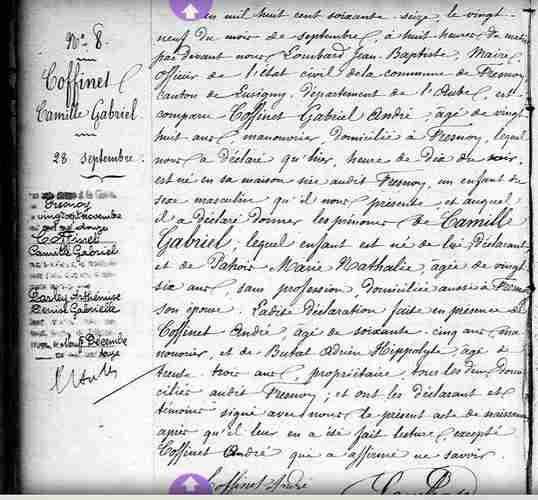 No. 8.
Coffinet
Camille Gabriel.
28 septembre.
Fresnoy
vingt sept novembre
Coffinet
Camille Gabriel
Denise Gabrielle
Décembre
En mil huit cent soixante-seize, le vingt-
neuf du mois de septembre, à huit heures du matin
par devant nous Lombard Jean-Baptiste, Maire,
officier de l'état civil de la commune de Fresnoy
canton de Lusigny, département de l'Aube, est
comparu Coffinet Gabriel André, âgé de vingt
huit ans, manouvrier, domicilié à Fresnoy, lequel
nous a déclaré qu'hier, heure de dix du soir,
est né en sa maison sise audit Fresnoy, un enfant du
sexe masculin qu'il nous présente et auquel
il a déclaré donner les prénoms de Camille
Gabriel; lequel enfant est né de lui déclarant
et de Marie Nathalie, âgée de vingt
six ans, sans profession, domiciliée aussi à Fresnoy
son épouse. Ladite déclaration faite en présence de
Coffinet André, âgé de soixante-cinq ans, ma
nouvrier, et de Butat Adrien Hippolyte, âgé de
trente-trois ans, propriétaire, tous les deux domi
ciliés audit Fresnoy; et ont les déclarant et
témoins signé avec nous le présent acte de naissance
après qu'il leur en a été fait lecture, excepté
Coffinet André qui a affirmé ne savoir.
Coffinet André